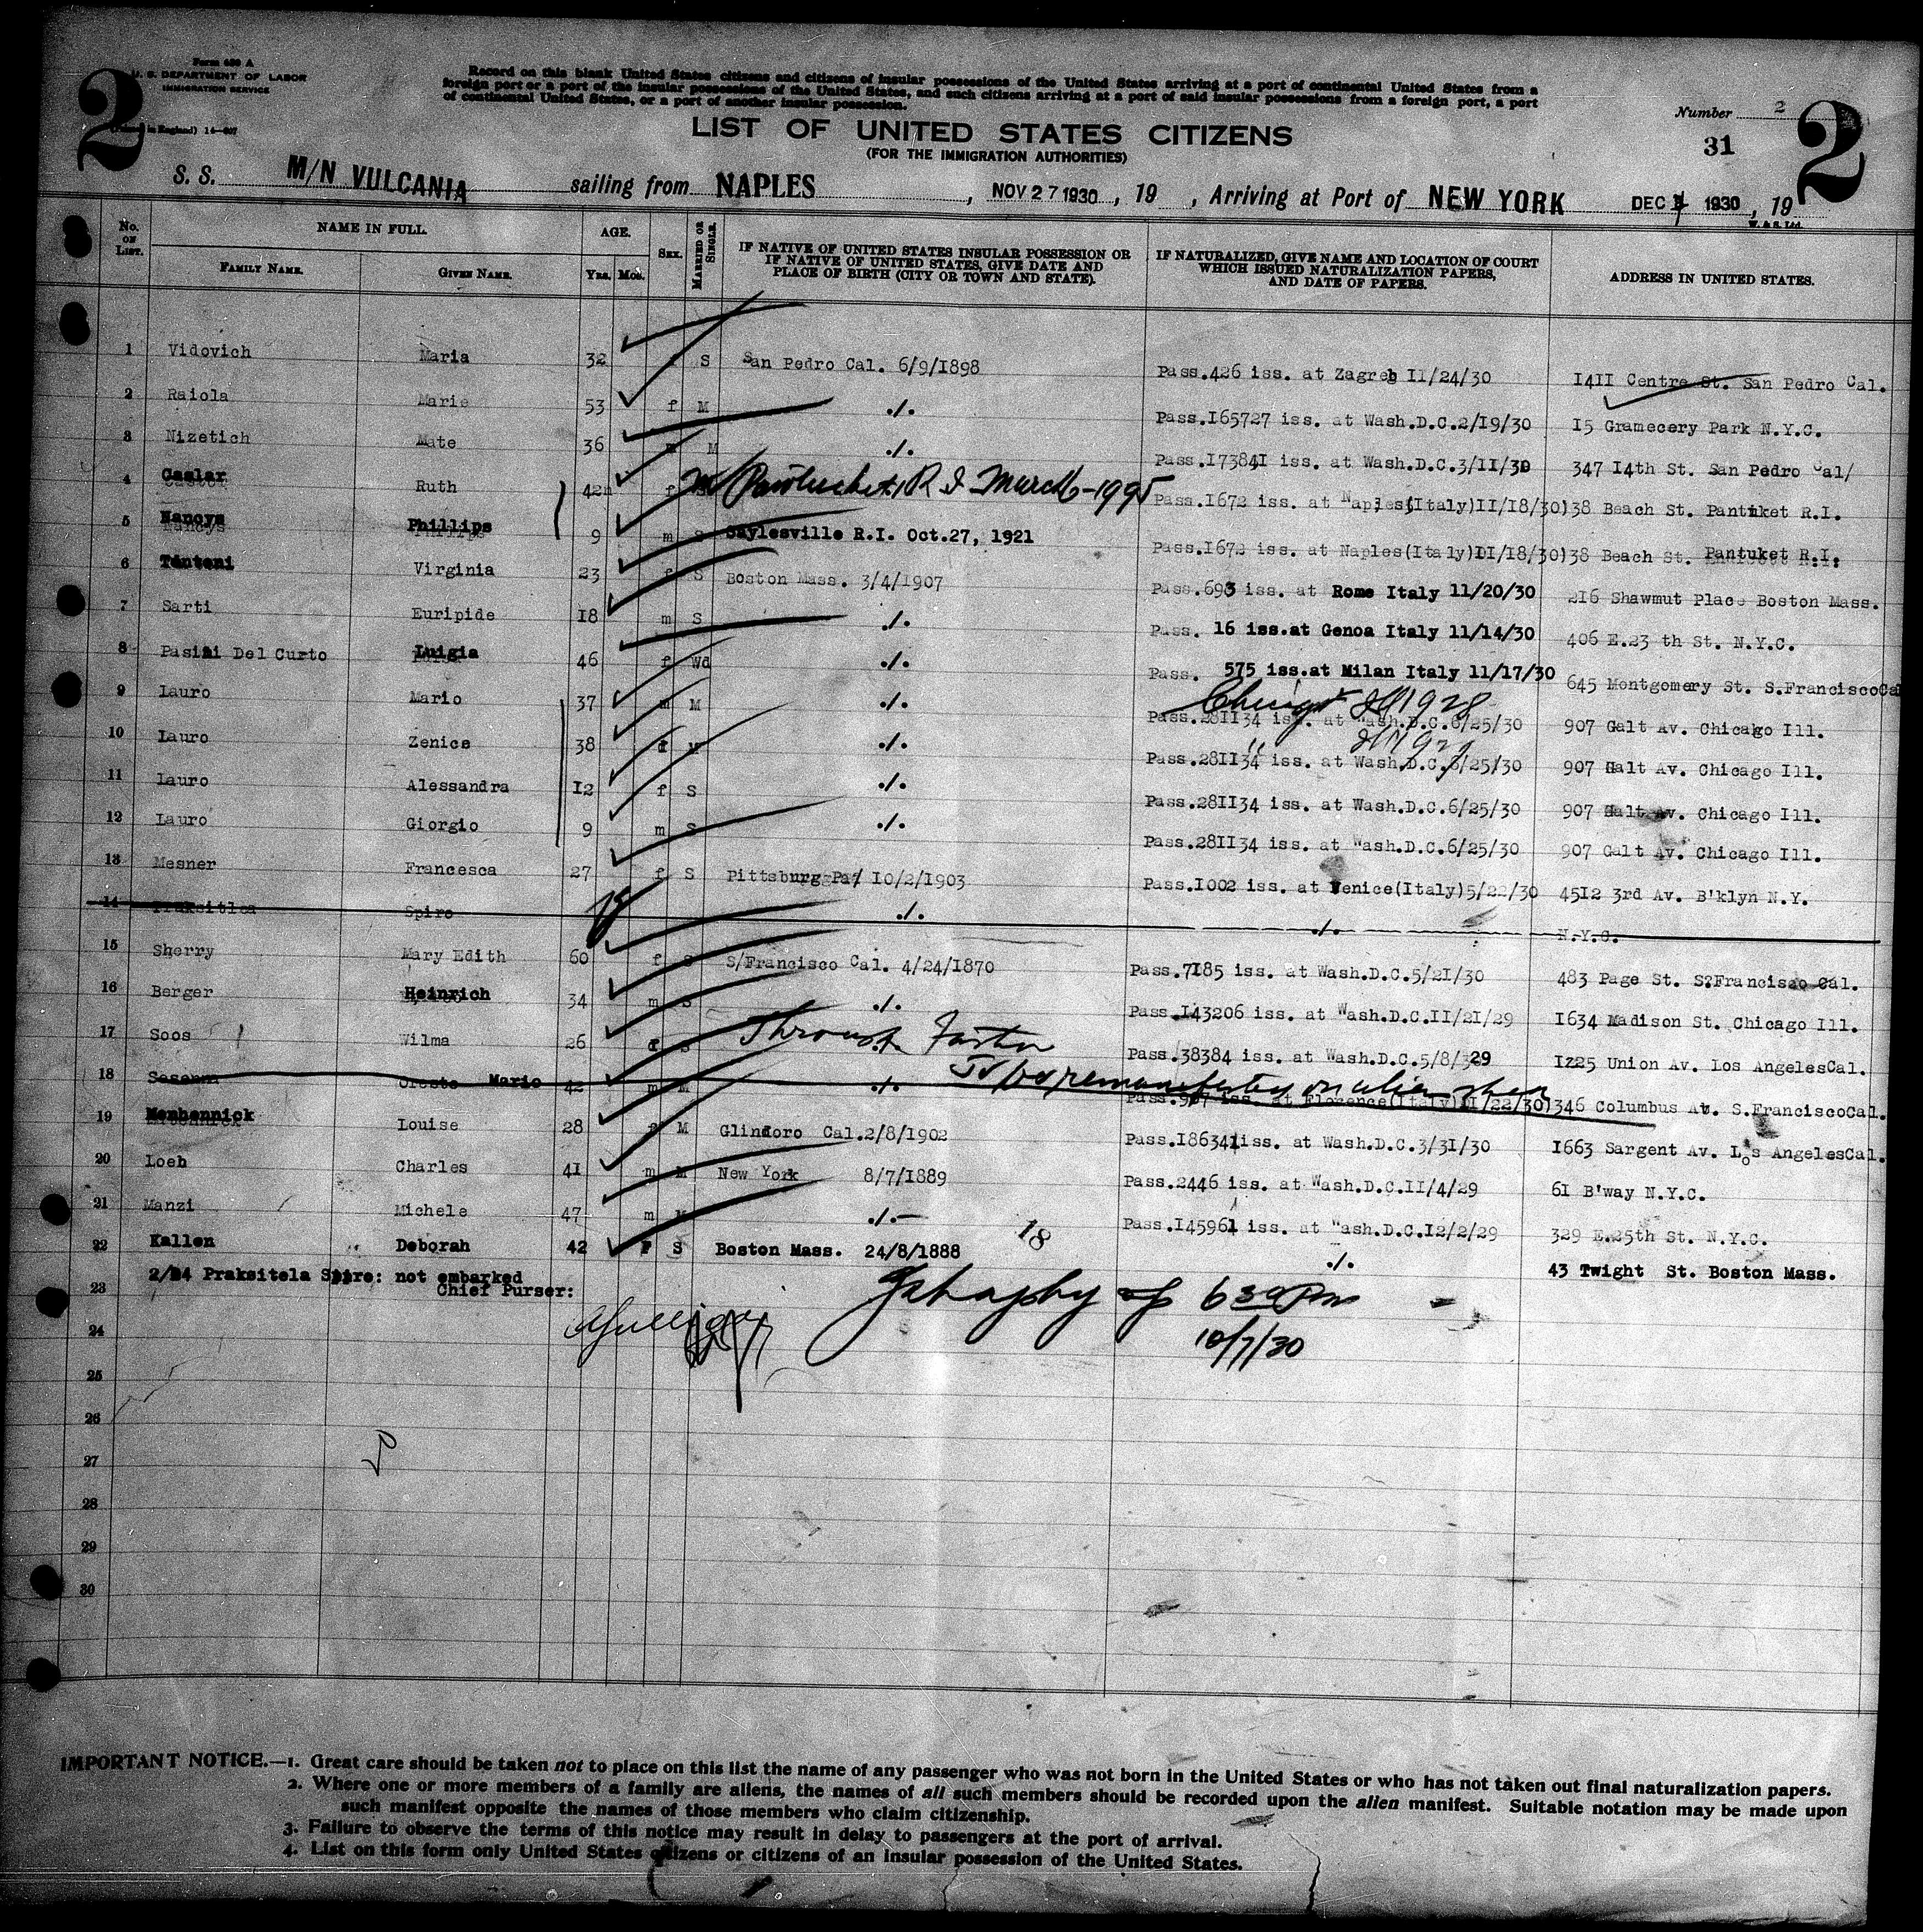 Form 630 A
U. S. DEPARTMENT OF LABOR
IMMIGRATION SERVICE
in England) 14—
2
2
Record on this blank United States citizens and citizens of insular possessions of the United States arriving at a port of continental United States from a
foreign port or a port of the insular possessions of the United States, and such citizens arriving at a port of said insular possessions from a foreign port, a port
of continental United States, or a port of another insular possession.
Number 2
LIST OF UNITED STATES CITIZENS
(FOR THE IMMIGRATION AUTHORITIES)
31
S. S. M/N VULCANIA sailing from NAPLES , NOV 27 1930 , 19 , Arriving at Port of NEW YORK DEC 1930 , 19
W. & S. Ltd.
No. ON LIST. NAME IN FULL. FAMILY NAME. GIVEN NAME. AGE. Yrs. Mos. SEX. MARRIED OR SINGLE. IF NATIVE OF UNITED STATES INSULAR POSSESSION OR IF NATIVE OF UNITED STATES, GIVE DATE AND PLACE OF BIRTH (CITY OR TOWN AND STATE). IF NATURALIZED, GIVE NAME AND LOCATION OF COURT WHICH ISSUED NATURALIZATION PAPERS, AND DATE OF PAPERS. ADDRESS IN UNITED STATES.
1 Vidovich Maria 32 f S San Pedro Cal. 6/9/1898 Pass.426 iss. at Zagreb II/24/30 I4II Centre St. San Pedro Cal.
2 Raiola Marie 53 f M ./. Pass.I65727 iss. at Wash.D.C.2/19/30 I5 Gramecery Park N.Y.C.
3 Nizetich Mate 36 m M ./. Pass.I73841 iss. at Wash.D.C.3/II/30 347 I4th St. San Pedro Cal/
4 Caslar Ruth 42 f m Pawtucket, R I March- Pass.I672 iss. at Naples(Italy)II/18/30 138 Beach St. Pantuket R.I.
5 Nancys Phillips 9 m S Saylesville R.I. Oct.27, 1921 Pass.I672 iss. at Naples(Italy)II/18/30 138 Beach St. Pantuket R.I.
6 Tanteni Virginia 23 f S Boston Mass. 3/4/1907 Pass.693 iss. at Rome Italy 11/20/30 216 Shawmut Place Boston Mass.
7 Sarti Euripide I8 m S ./. Pass. 16 iss.at Genoa Italy 11/14/30 406 E.23 th St. N.Y.C.
8 Pasini Del Curto Luigia 46 f Wd ./. Pass. 575 iss.at Milan Italy 11/17/30 645 Montgomery St. S.FranciscoCal
Chicago 1928
9 Lauro Mario 37 m M ./. Pass.28II34 iss. at Wash.D.C.6/25/30 907 Galt Av. Chicago Ill.
10 Lauro Zenice 38 f M ./. Pass.28II34 iss. at Wash.D.C.6/25/30 907 Galt Av. Chicago Ill.
11 Lauro Alessandra I2 f S ./. Pass.28II34 iss. at Wash.D.C.6/25/30 907 Galt Av. Chicago Ill.
12 Lauro Giorgio 9 m S ./. Pass.28II34 iss. at Wash.D.C.6/25/30 907 Galt Av. Chicago Ill.
13 Mesner Francesca 27 f S Pittsburg Pa/ I0/2/1903 Pass.I002 iss. at Venice(Italy)5/22/30 4512 3rd Av. B'klyn N.Y.
14 Praksitlea Spiro ./. ./. N.Y.C.
15 Sherry Mary Edith 60 f S S/Francisco Cal. 4/24/1870 Pass.7I85 iss. at Wash.D.C.5/21/30 483 Page St. S?Francisco Cal.
16 Berger Heinrich 34 m S ./. Pass.I43206 iss. at Wash.D.C.II/21/29 I634 Madison St. Chicago Ill.
17 Soos Wilma 26 f S ./. Pass.38384 iss. at Wash.D.C.5/8/29 IZ25 Union Av. Los AngelesCal.
To be remanifested on alien sheet
18 Oreste Mario 42 m M ./. Pass.907 iss. at Florence(Italy)II/22/30 1346 Columbus Av. S.FranciscoCal.
19 Menhennick Louise 28 f M Glindoro Cal.2/8/1902 Pass.I86341iss. at Wash.D.C.3/31/30 I663 Sargent Av. Los AngelesCal.
20 Loeb Charles 41 m M New York 8/7/1889 Pass.2446 iss. at Wash.D.C.II/4/29 61 B'way N.Y.C.
21 Manzi Michele 47 m M ./.— Pass.I45961 iss. at Wash.D.C.I2/2/29 329 E.25th St. N.Y.C.
18
22 Kallen Deborah 42 F S Boston Mass. 24/8/1888 ./. 43 Twight St. Boston Mass.
2/14 Praksitela Spiro: not embarked
23 Chief Purser:
6 30 Pm
24
25
26
27
28
29
30
IMPORTANT NOTICE.—1. Great care should be taken not to place on this list the name of any passenger who was not born in the United States or who has not taken out final naturalization papers.
2. Where one or more members of a family are aliens, the names of all such members should be recorded upon the alien manifest. Suitable notation may be made upon
such manifest opposite the names of those members who claim citizenship.
3. Failure to observe the terms of this notice may result in delay to passengers at the port of arrival.
4. List on this form only United States citizens or citizens of an insular possession of the United States.